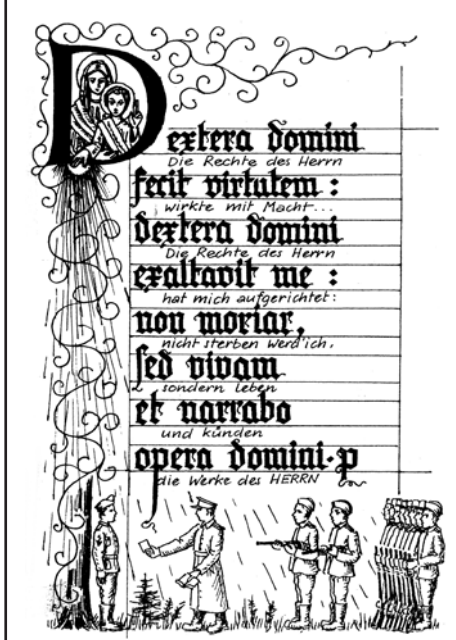 Dextera domini
Die Rechte des Herrn
fecit virtutem :
wirkte mit Macht...
dextera domini
Die Rechte des Herrn
exaltavit me :
hat mich aufgerichtet:
non moriar,
nicht sterben werd' ich,
sed vivam
sondern leben
et narrabo
und künden
opera domini·p
die Werke des HERRN